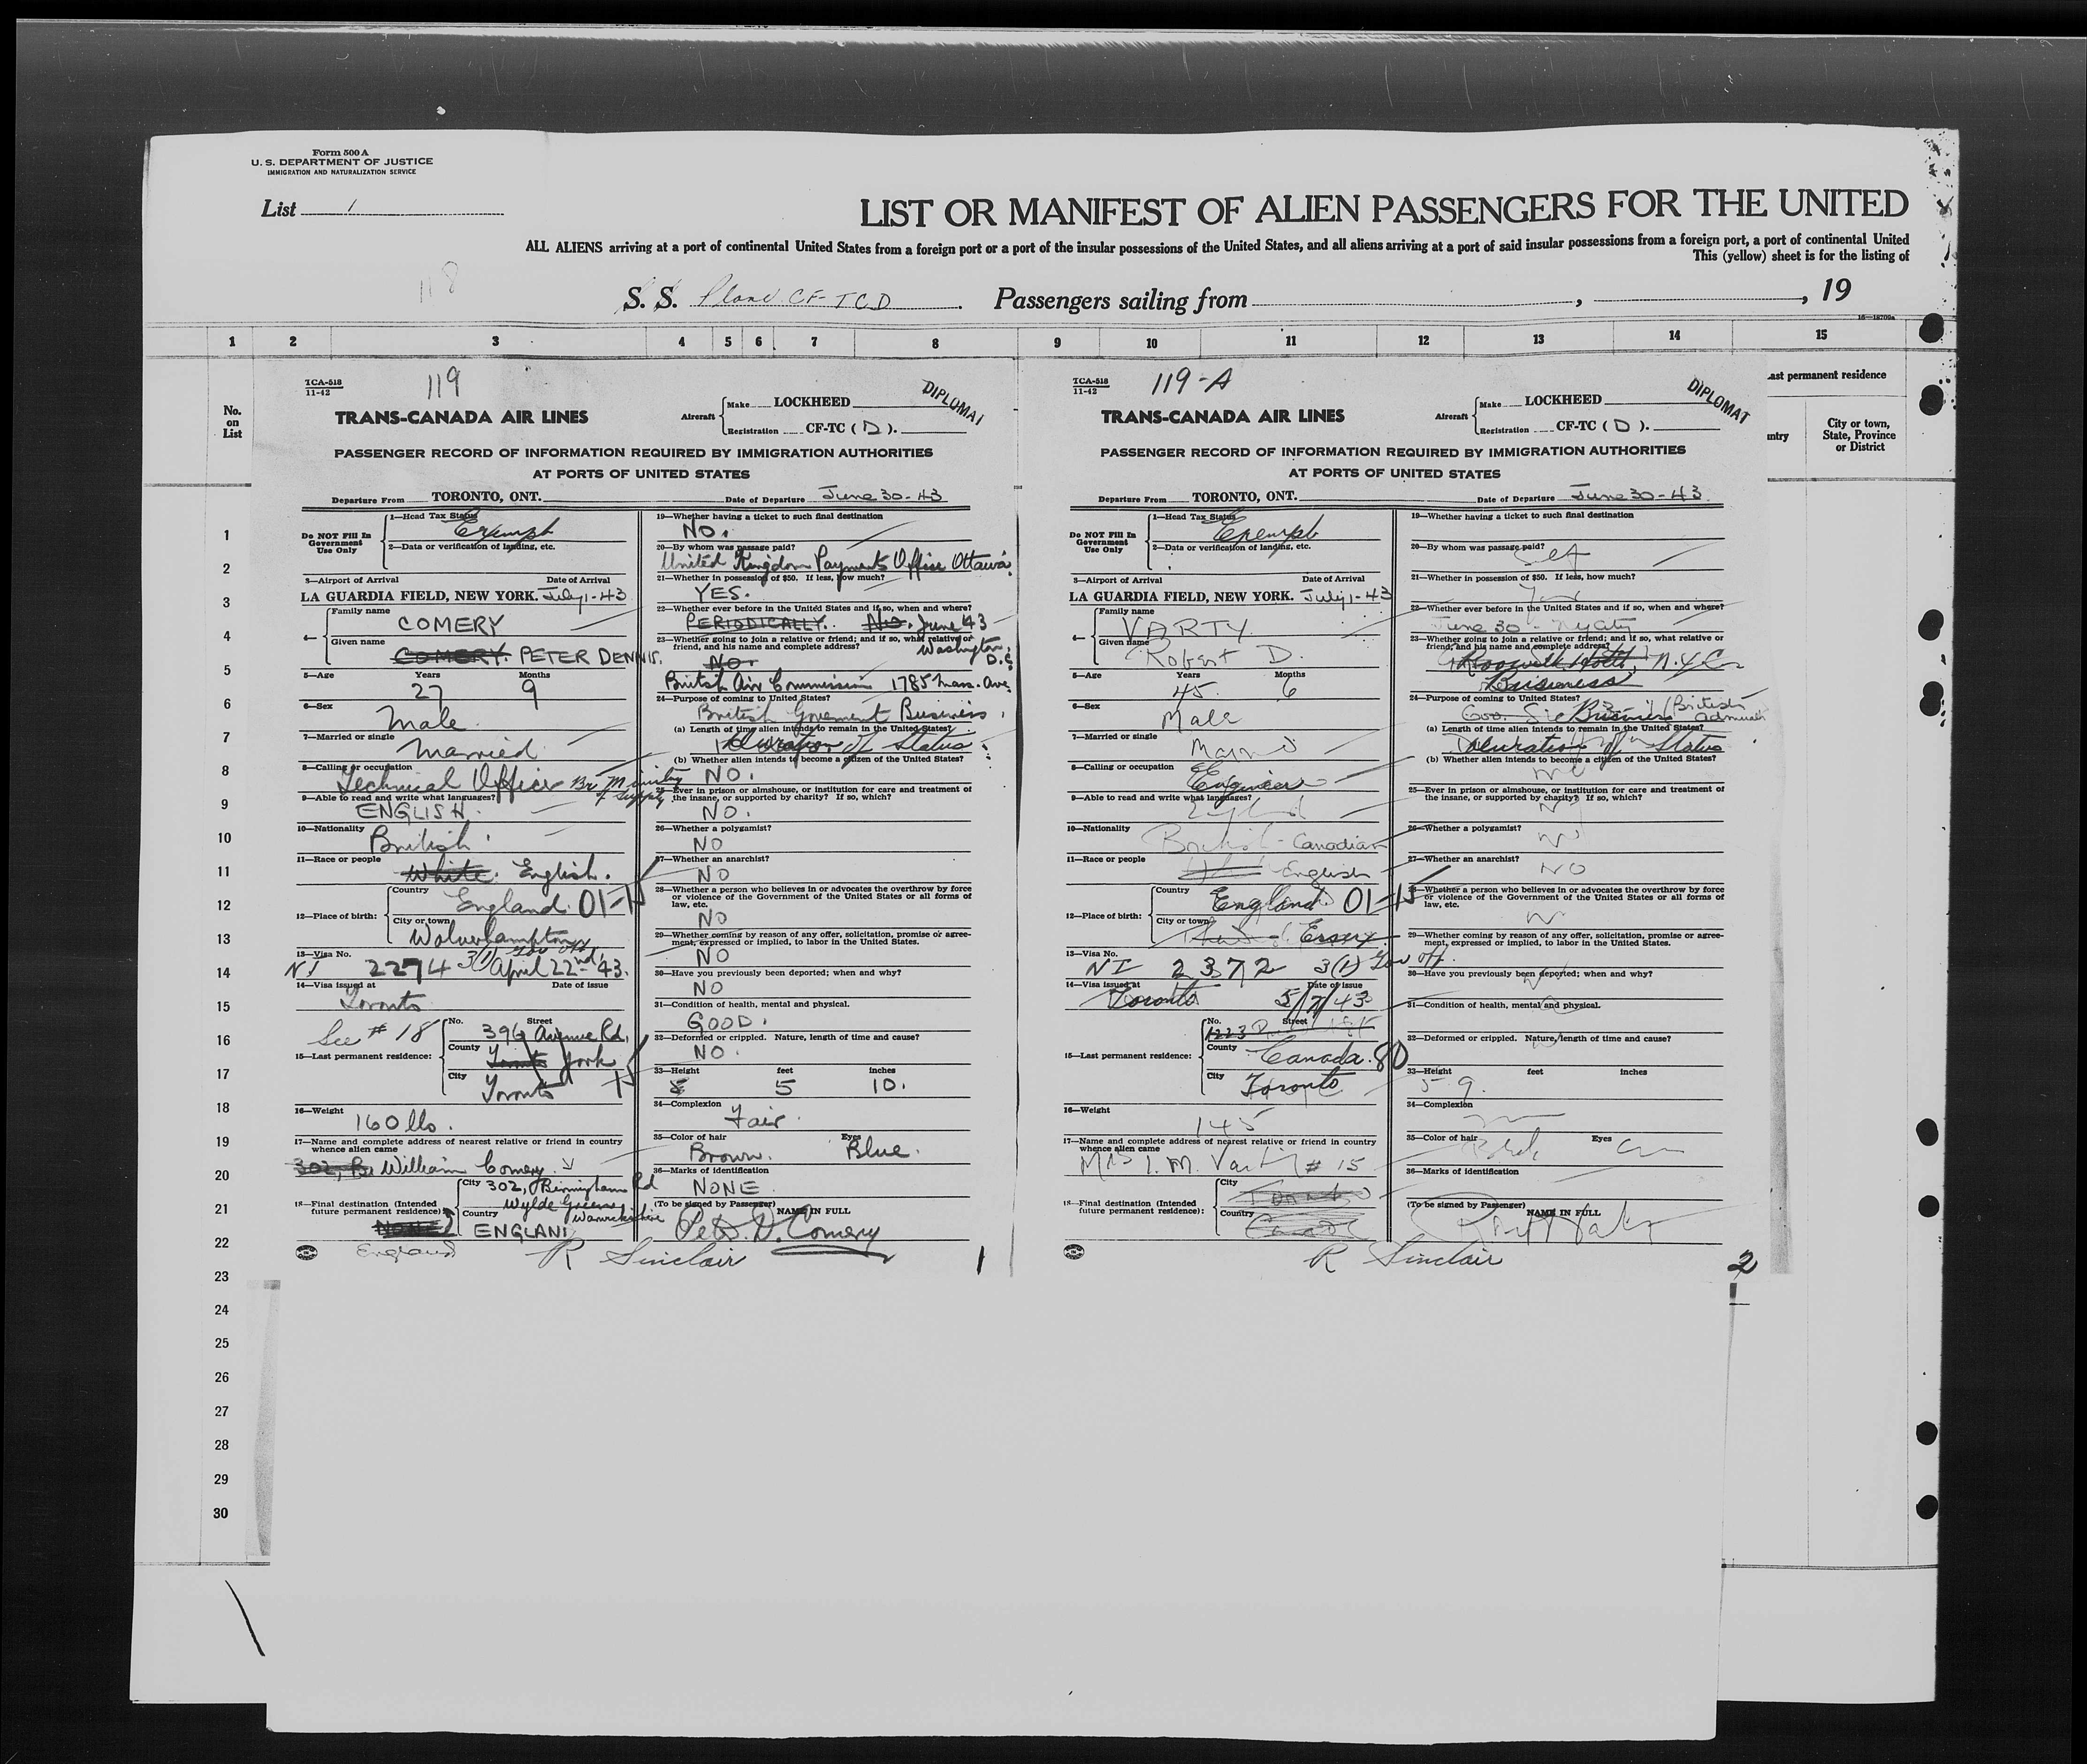 Form 500 A
U. S. DEPARTMENT OF JUSTICE
IMMIGRATION AND NATURALIZATION SERVICE
List 1
LIST OR MANIFEST OF ALIEN PASSENGERS FOR THE UNITED
ALL ALIENS arriving at a port of continental United States from a foreign port or a port of the insular possessions of the United States, and all aliens arriving at a port of said insular possessions from a foreign port, a port of continental United
This (yellow) sheet is for the listing of
118
S. S. Plane CF-TCD Passengers sailing from , , 19
16—18709a
1 2 3 4 5 6 7 8 9 10 11 12 13 14 15
No. on List
ast permanent residence
ntry
City or town, State, Province or District
1
2
3
4
5
6
7
8
9
10
11
12
13
14
15
16
17
18
19
20
21
22
23
24
25
26
27
28
29
30
TCA-518
11-42
119
DIPLOMAT
TRANS-CANADA AIR LINES
Aircraft
Make LOCKHEED
Registration CF-TC ( D ).
PASSENGER RECORD OF INFORMATION REQUIRED BY IMMIGRATION AUTHORITIES
AT PORTS OF UNITED STATES
Departure From TORONTO, ONT. Date of Departure June 30-43
Do NOT Fill In Government Use Only
1—Head Tax Status
Exempt
2—Data or verification of landing, etc.
3—Airport of Arrival Date of Arrival
LA GUARDIA FIELD, NEW YORK. July 1-43
4— Family name
COMERY
Given name
COMERY. PETER DENNIS.
5—Age Years Months
27 9
6—Sex
Male
7—Married or single
Married
8—Calling or occupation
Technical Officer Br Ministry of Supply
9—Able to read and write what languages?
ENGLISH.
10—Nationality
British
11—Race or people
White. English.
12—Place of birth:
Country
England. 01-15
City or town
Wolverhampton
13—Visa No.
NI 2274 3(1) Gov off. April 22nd '43.
14—Visa issued at Date of issue
Toronto
See # 18
15—Last permanent residence:
No. Street
396 Avenue Rd.
County
Toronto York
City
Toronto
15
16—Weight
160 lbs.
17—Name and complete address of nearest relative or friend in country whence alien came
302, B William Comery.
18—Final destination (Intended future permanent residence):
City 302, Birmingham Rd
Wylde Green
Warwickshire
Country
NONE ENGLAND
England
19—Whether having a ticket to such final destination
NO.
20—By whom was passage paid?
United Kingdom Payments Office Ottawa
21—Whether in possession of $50. If less, how much?
YES.
22—Whether ever before in the United States and if so, when and where?
PERIODICALLY. No. June 43
23—Whether going to join a relative or friend; and if so, what relative or friend, and his name and complete address?
Washington, D.C.
NO.
British Air Commission 1785 Mass. Ave.
24—Purpose of coming to United States?
British Goverment Business.
(a) Length of time alien intends to remain in the United States?
Duration of Status
(b) Whether alien intends to become a citizen of the United States?
NO.
25—Ever in prison or almshouse, or institution for care and treatment of the insane, or supported by charity? If so, which?
NO.
26—Whether a polygamist?
NO
27—Whether an anarchist?
NO
28—Whether a person who believes in or advocates the overthrow by force or violence of the Government of the United States or all forms of law, etc.
NO
29—Whether coming by reason of any offer, solicitation, promise or agreement, expressed or implied, to labor in the United States.
NO
30—Have you previously been deported; when and why?
NO
31—Condition of health, mental and physical.
GOOD.
32—Deformed or crippled. Nature, length of time and cause?
NO.
33—Height feet inches
5 10.
34—Complexion
Fair.
35—Color of hair Eyes
Brown. Blue.
36—Marks of identification
NONE
(To be signed by Passenger) NAME IN FULL
Peter D. Comery
R Sinclair
1
TCA-518
11-42
119-A
DIPLOMAT
TRANS-CANADA AIR LINES
Aircraft
Make LOCKHEED
Registration CF-TC ( D ).
PASSENGER RECORD OF INFORMATION REQUIRED BY IMMIGRATION AUTHORITIES
AT PORTS OF UNITED STATES
Departure From TORONTO, ONT. Date of Departure June 30-43
Do NOT Fill In Government Use Only
1—Head Tax Status
Exempt
2—Data or verification of landing, etc.
3—Airport of Arrival Date of Arrival
LA GUARDIA FIELD, NEW YORK. July 1-43
4— Family name
VARTY
Given name
Robert D.
5—Age Years Months
45 6
6—Sex
Male
7—Married or single
Married
8—Calling or occupation
Engineer
9—Able to read and write what languages?
English
10—Nationality
British - Canadian
11—Race or people
English
12—Place of birth:
Country
England 01-15
City or town
Essex
13—Visa No.
NI 2372 3(1) Gov off.
14—Visa issued at Date of issue
Toronto 5/7/43
15—Last permanent residence:
No. Street
1223
County
Canada. 80
City
Toronto
16—Weight
145
17—Name and complete address of nearest relative or friend in country whence alien came
Mrs I. M. Varty # 15
18—Final destination (Intended future permanent residence):
City
Toronto
Country
Canada
19—Whether having a ticket to such final destination
20—By whom was passage paid?
Self
21—Whether in possession of $50. If less, how much?
Yes
22—Whether ever before in the United States and if so, when and where?
June 30 - NyCity
23—Whether going to join a relative or friend; and if so, what relative or friend, and his name and complete address?
Roosevelt Hotel, N.Y.C.
Business
24—Purpose of coming to United States?
Business (British
(a) Length of time alien intends to remain in the United States?
Duration of Status
(b) Whether alien intends to become a citizen of the United States?
No
25—Ever in prison or almshouse, or institution for care and treatment of the insane, or supported by charity? If so, which?
No
26—Whether a polygamist?
No
27—Whether an anarchist?
NO
28—Whether a person who believes in or advocates the overthrow by force or violence of the Government of the United States or all forms of law, etc.
No
29—Whether coming by reason of any offer, solicitation, promise or agreement, expressed or implied, to labor in the United States.
30—Have you previously been deported; when and why?
31—Condition of health, mental and physical.
32—Deformed or crippled. Nature, length of time and cause?
33—Height feet inches
5 9.
34—Complexion
35—Color of hair Eyes
36—Marks of identification
(To be signed by Passenger) NAME IN FULL
R Sinclair
2